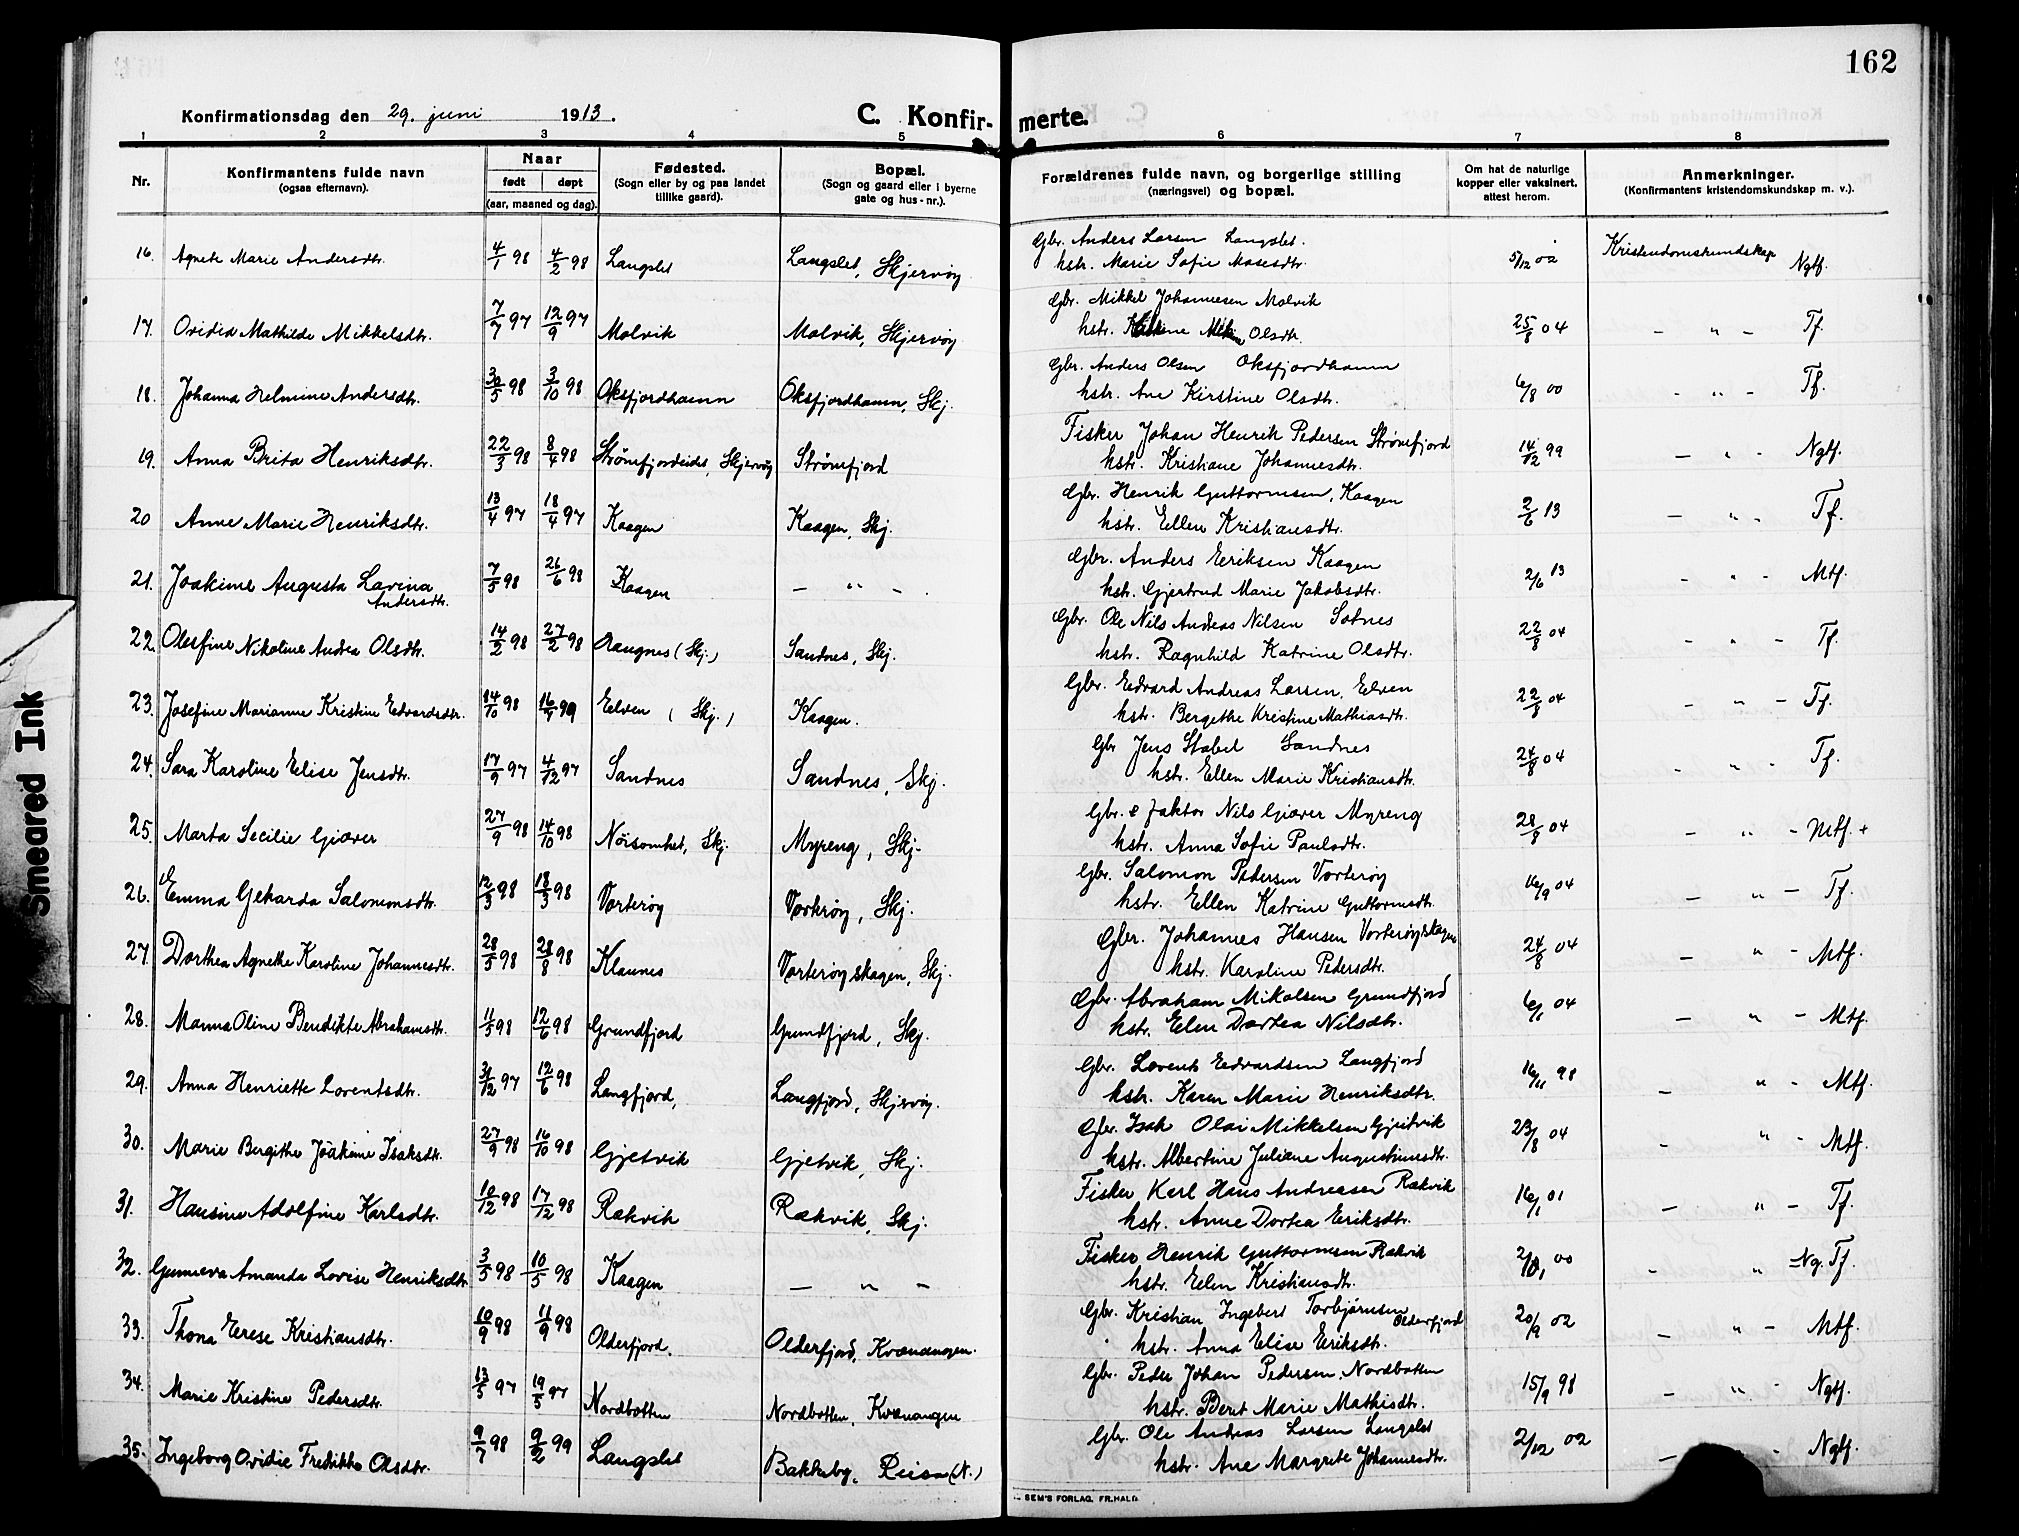 162
Konfirmationsdag den 29. juni 1913.
C. Konfir- merte.
1 2 3 4 5 6 7 8
Nr.
Konfirmantens fulde navn
(ogsaa efternavn).
Naar
født døpt
(aar, maaned og dag).
Fødested.
(Sogn eller by og paa landet
tillike gaard).
Bopæl.
(Sogn og gaard eller i byerne
gate og hus-nr.).
Forældrenes fulde navn, og borgerlige stilling
(næringsvei) og bopæl.
Om hat de naturlige
kopper eller vaksinert,
attest herom.
Anmerkninger.
(Konfirmantens kristendomskundskap m. v.).
16. Agnete Marie Andersdtr. 4/1 98 4/2 98 Langslet Langslet, Skjervøy Gbr. Anders Larsen Langslet.
hstr. Marie Sofie Mosesdtr. 5/12 02 Kristendomskundskap Ngtf.
17. Ovidia Mathilde Mikkelsdtr. 7/7 97 12/9 97 Molvik Molvik, Skjervøy Gbr. Mikkel Johannesen Molvik
hstr. Olsdtr. 25/8 04 - " - Tf.
18. Johanna Helmine Andersdtr. 30/5 98 3/10 98 Oksfjordhamn Oksfjordhamn, Skj. Gbr. Anders Olsen Oksfjordhamn
hstr. Ane Kirstine Olsdtr. 6/8 00 - " - Tf.
19. Anna Brita Henriksdtr. 22/3 98 8/4 98 Strømfjordeidet, Skjervøy Strømfjord Fisker Johan Henrik Pedersen Strømfjord
hstr. Kristiane Johannesdtr. 14/12 99 - " - Ngtf.
20 Anne Marie Henriksdtr. 13/4 97 18/4 97 Kaagen Kaagen, Skj. Gbr. Henrik Guttormsen, Kaagen
hstr. Ellen Kristiansdtr. 2/6 13 - " - Tf.
21. Joakime Augusta Lavina
Andersdtr. 7/5 98 26/6 98 Kaagen - " - Gbr. Anders Eriksen Kaagen
hstr. Gjertrud Marie Jakobsdtr. 2/6 13 - " - Mtf.
22. Olesfine Nikoline Andrea Olsdtr. 14/2 98 27/2 98 (Skj.) Sandnes, Skj. Gbr. Ole Nils Andreas Nilsen Sotnes
hstr. Ragnhild Katrine Olsdtr. 22/8 04 - " - Tf.
23. Josefine Marianne Kristine Edvardsdtr. 14/10 98 16/4 99 Elven (Skj.) Kaagen. Gbr. Edvard Andreas Larsen, Elven
hstr. Bergethe Kristine Mathiasdtr. 22/8 04 - " - Tf.
24. Sara Karoline Elise Jensdtr. 17/9 97 4/12 97 Sandnes Sandnes, Skj. Gbr. Jens Stabel Sandnes
hstr. Ellen Marie Kristiansdtr. 24/8 04 - " - Tf.
25. Marta Secilie Giæver 27/9 98 14/10 98 Nøisomhet, Skj. Myreng, Skj. Gbr. & faktor Nils Giæver Myreng
hstr. Anna Sofie Paulsdtr. 28/8 04 - " - Mtf. +
26. Emma Gekarda Salomonsdtr. 12/3 98 18/3 98 Vorterøy Vorterøy, Skj. Gbr. Salomon Pedersen Vorterøy
hstr. Ellen Katrine Guttormsdtr. 16/9 04 - " - Tf.
27. Dorthea Agnethe Karoline Johannesdtr. 28/5 98 28/8 98 Klaunes Vorterøyskagen, Skj. Gbr. Johannes Hansen Vorterøyskagen
hstr. Karoline Pedersdtr. 24/8 04 - " - Mtf.
28. Manna Oline Bendikte Abrahamsdtr. 11/5 98 12/6 98 Grundfjord Grundfjord, Skj. Gbr. Abraham Mikalsen Grundfjord
hstr. Elen Dortea Nilsdtr. 6/1 04 - " - Mtf.
29. Anna Henriette Lorentsdtr. 31/12 97 12/6 98 Langfjord, Langfjord, Skjervøy. Gbr. Lorents Edvardsen Langfjord
hstr. Karen Marie Henriksdtr. 16/11 98 - " - Mtf.
30. Marie Bergithe Joakime Isaksdtr. 27/9 98 16/10 98 Gjetvik Gjetvik, Skj. Gbr. Isak Olai Mikkelsen Gjetvik
hstr. Albertine Juliane Augustinusdtr. 23/8 04 - " - Mtf.
31. Hansine Adolfine Karlsdtr. 10/12 98 17/12 98 Rakvik Rakvik, Skj. Fisker Karl Hans Andreasen Rakvik
hstr. Anne Dortea Eriksdtr. 16/1 01 - " - Tf.
32. Gunneva Amanda Lovise Henriksdtr. 3/5 98 10/5 98 Kaagen - " - Fisker Henrik Guttormsen Rakvik
hstr. Elen Kristiansdtr. 00 - " - Ng. Tf.
33. Thona Erese Kristiansdtr. 10/9 98 11/9 98 Olderfjord. Olderfjord, Kvænangen. Gbr. Kristian Ingebert Torbjørnsen Olderfjord
hstr. Anna Elise Eriksdtr. 20/9 02 - " - Mtf.
34. Marie Kristine Pedersdtr. 13/5 97 19/5 97 Nordbotten Nordbotten, Kvænangen Gbr. Peder Johan Pedersen, Nordbotten
hstr. Beret Marie Mathisdtr. 15/9 98 - " - Ngtf.
35. Ingeborg Ovidie Fredrikke Olsdtr. 9/7 98 9/2 99 Langslet Bakkeby, Reisa (N.) Gbr. Ole Andreas Larsen Langslet
hstr. Ane Margrete Johannesdtr. 2/12 02 - " - Ngtf.
SEM'S FORLAG, FR.HALD
Smeared Ink